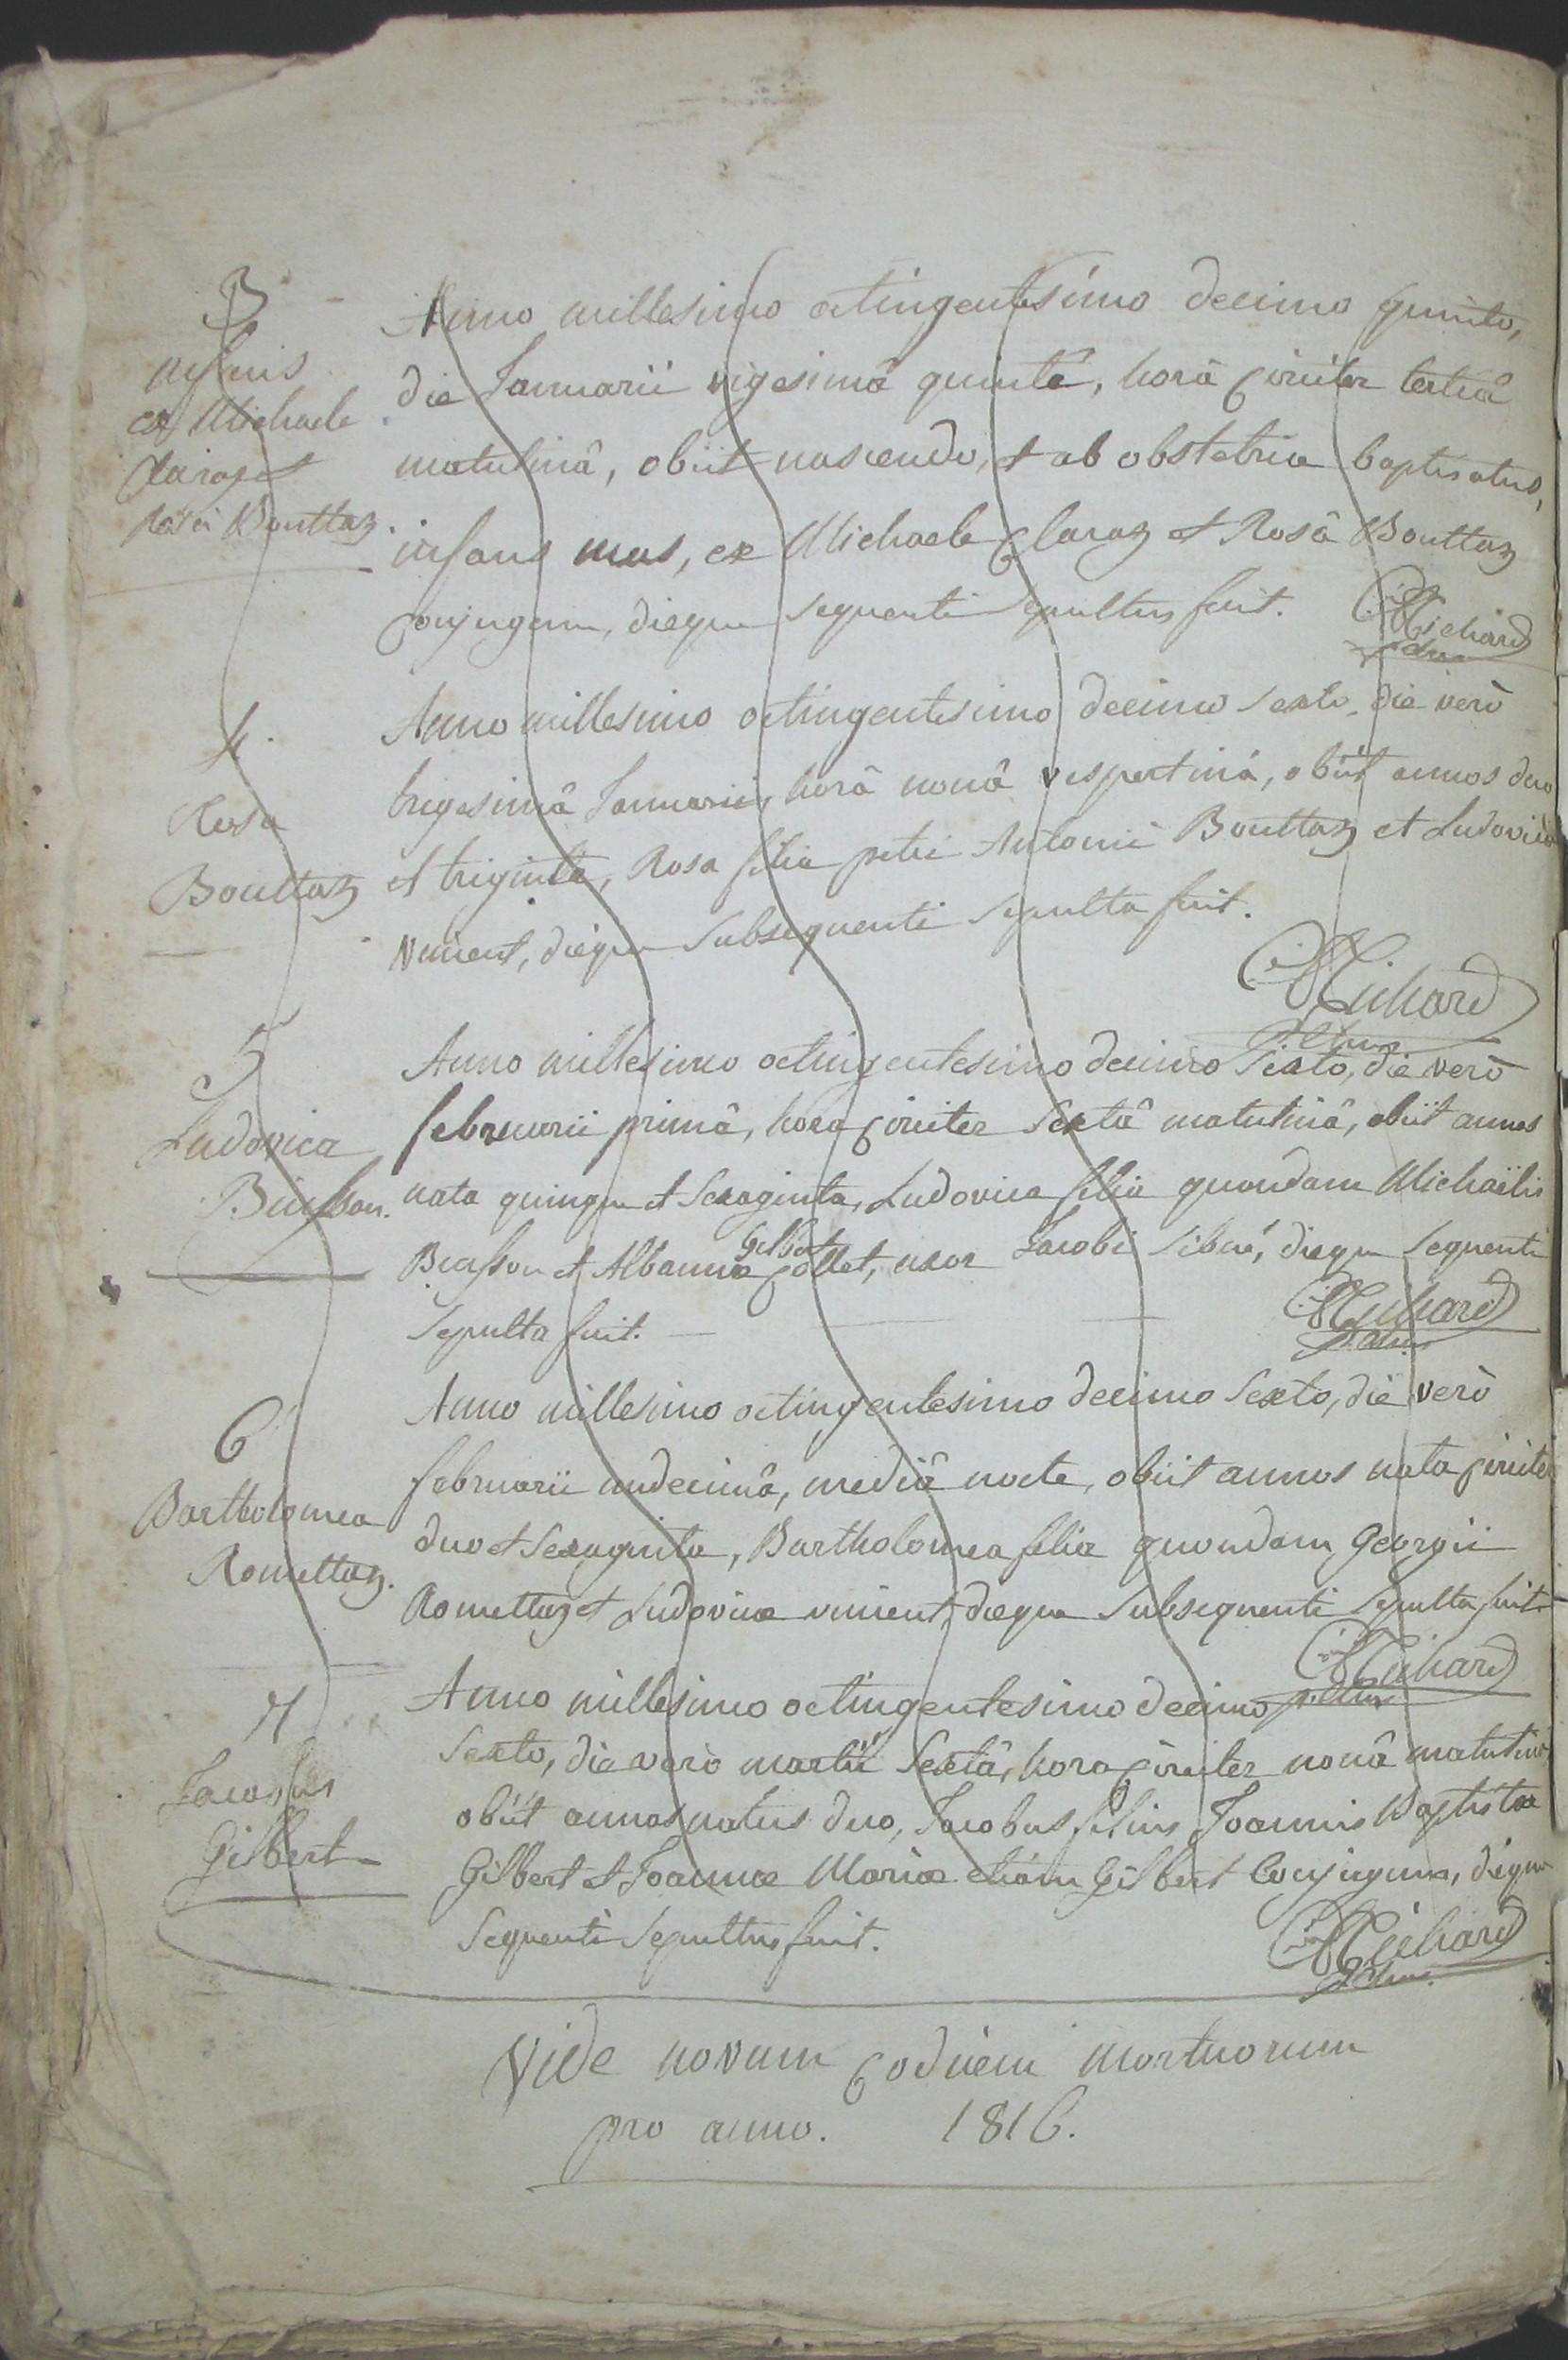 3
infans
ex Michaele
Claraz et
Rosâ Bouttaz.
Anno millesimo octingentesimo decimo quinto,
die Januarii vigesimâ quintâ, horâ circiter tertiâ
matutinâ, obiit nascendo, et ab obstetrice baptisatus,
infans mas, ex Michaele Claraz et Rosâ Bouttaz
conjugum, dieque sequenti sepultus fuit. Michard
4.
Rosa
Bouttaz
Anno millesimo octingentesimo decimo sexto, die verò
trigesimâ Januarii, horâ nonâ vespertinâ, obiit annos duo
et triginta, Rosa filia petri Antonii Bouttaz et Ludovicæ
Vincent, dieque subsequenti sepulta fuit.
Michard
5
Ludovica
Anno millesimo octingentesimo decimo sexto, die verò
februarii primâ, hora circiter sextâ matutinâ, obiit annos
nata quinque et sexaginta, Ludovica filia quondam Michaëlis
et Albannæ Gilbert, uxor Jacobi dieque sequenti
sepulta fuit. Michard
6
Bartholomea
Romettaz.
Anno millesimo octingentesimo decimo sexto, die verò
februarii undecimâ, mediâ nocte, obiit annos nata circiter
duo et sexaginta, Bartholomea filia quondam Georgii
Romettaz et Ludovicæ vincent, dieque subsequenti sepulta fuit.
Michard
7
Jacobus
Gilbert
Anno millesimo octingentesimo decimo
sexto, die verò martii sextâ, hora circiter nonâ matutinâ
obiit annos natus duo, Jacobus filius Joannis Baptistæ
Gilbert et Joannæ Mariæ etiam Gilbert Conjugum, dieque
sequenti sepultus fuit. Michard
Vide novum codicem mortuorum
pro anno. 1816.